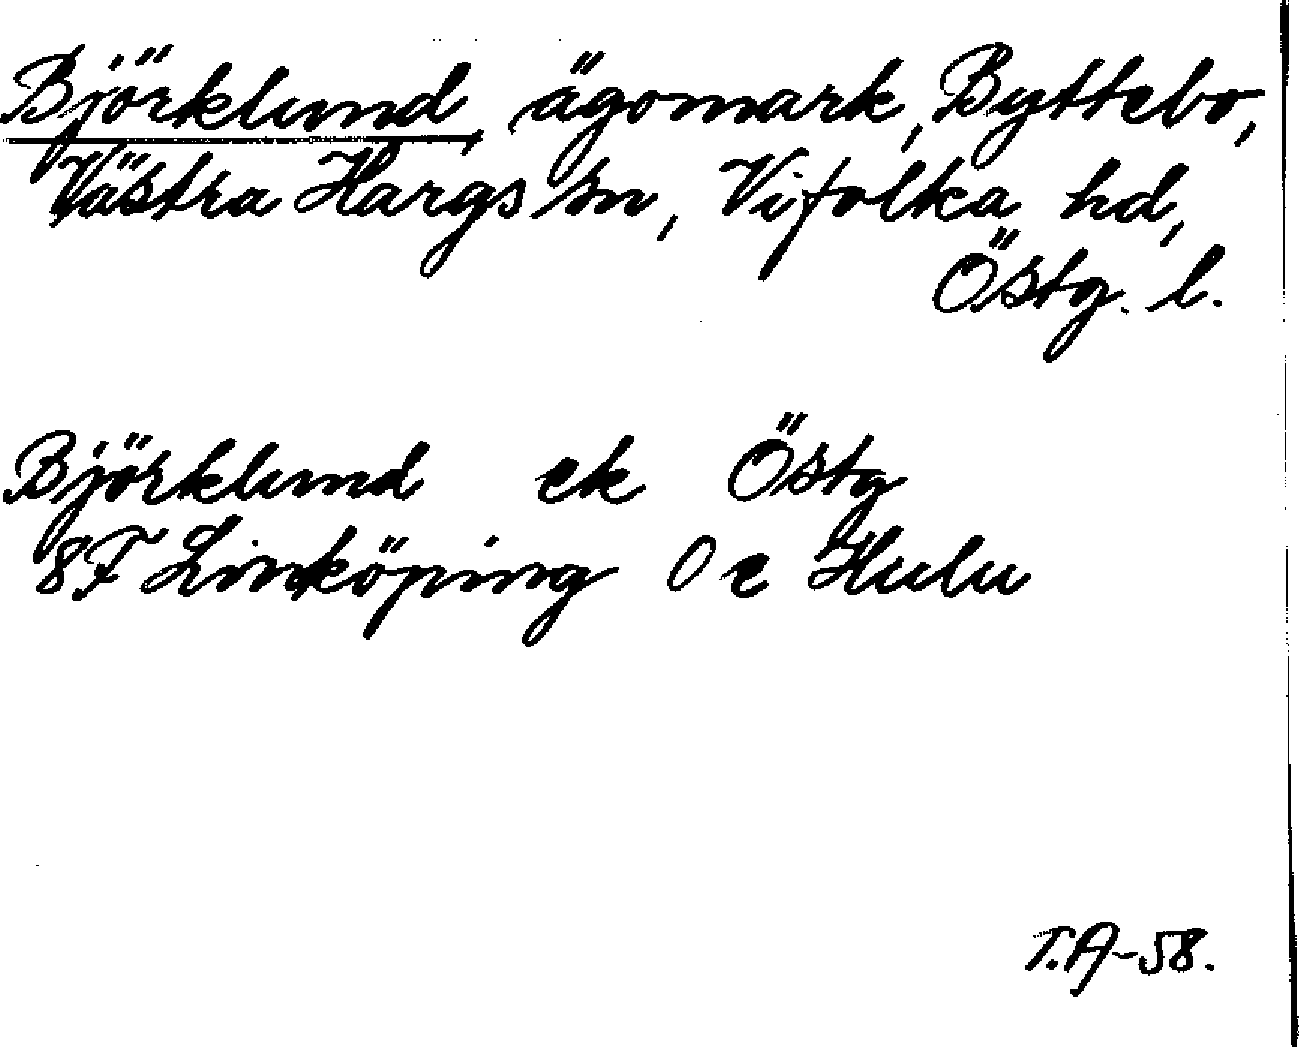 Björklund, ägomark, Byttebo,
Västra Hargs sn, Vifolka hd,
Östg. l.
Björklund ek Östg
8F Linköping 0 e Hulu
T.A-58.